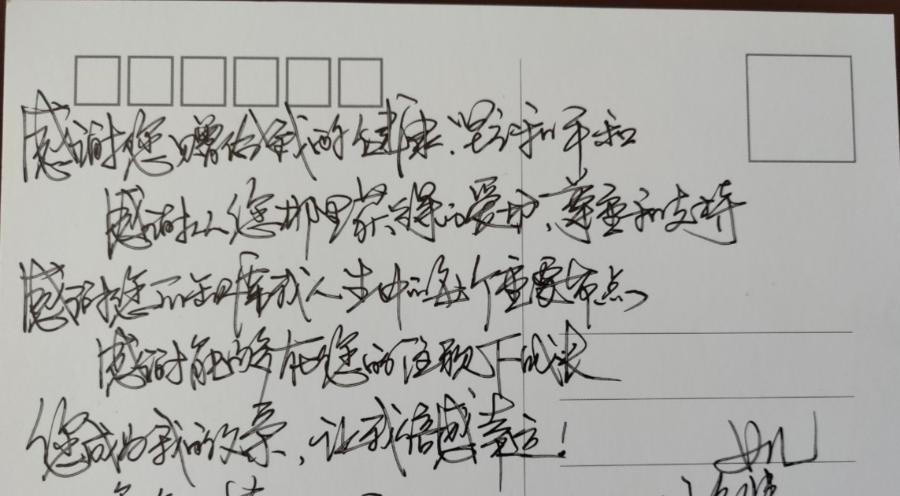 感谢您赠给我的健康、坚强和平和
感谢从您那里获得的爱护、尊重和支持
感谢您不缺席我人生中的每个重要节点
感谢能够在您的注视下成长
您成为我的父亲,让我倍感幸运!